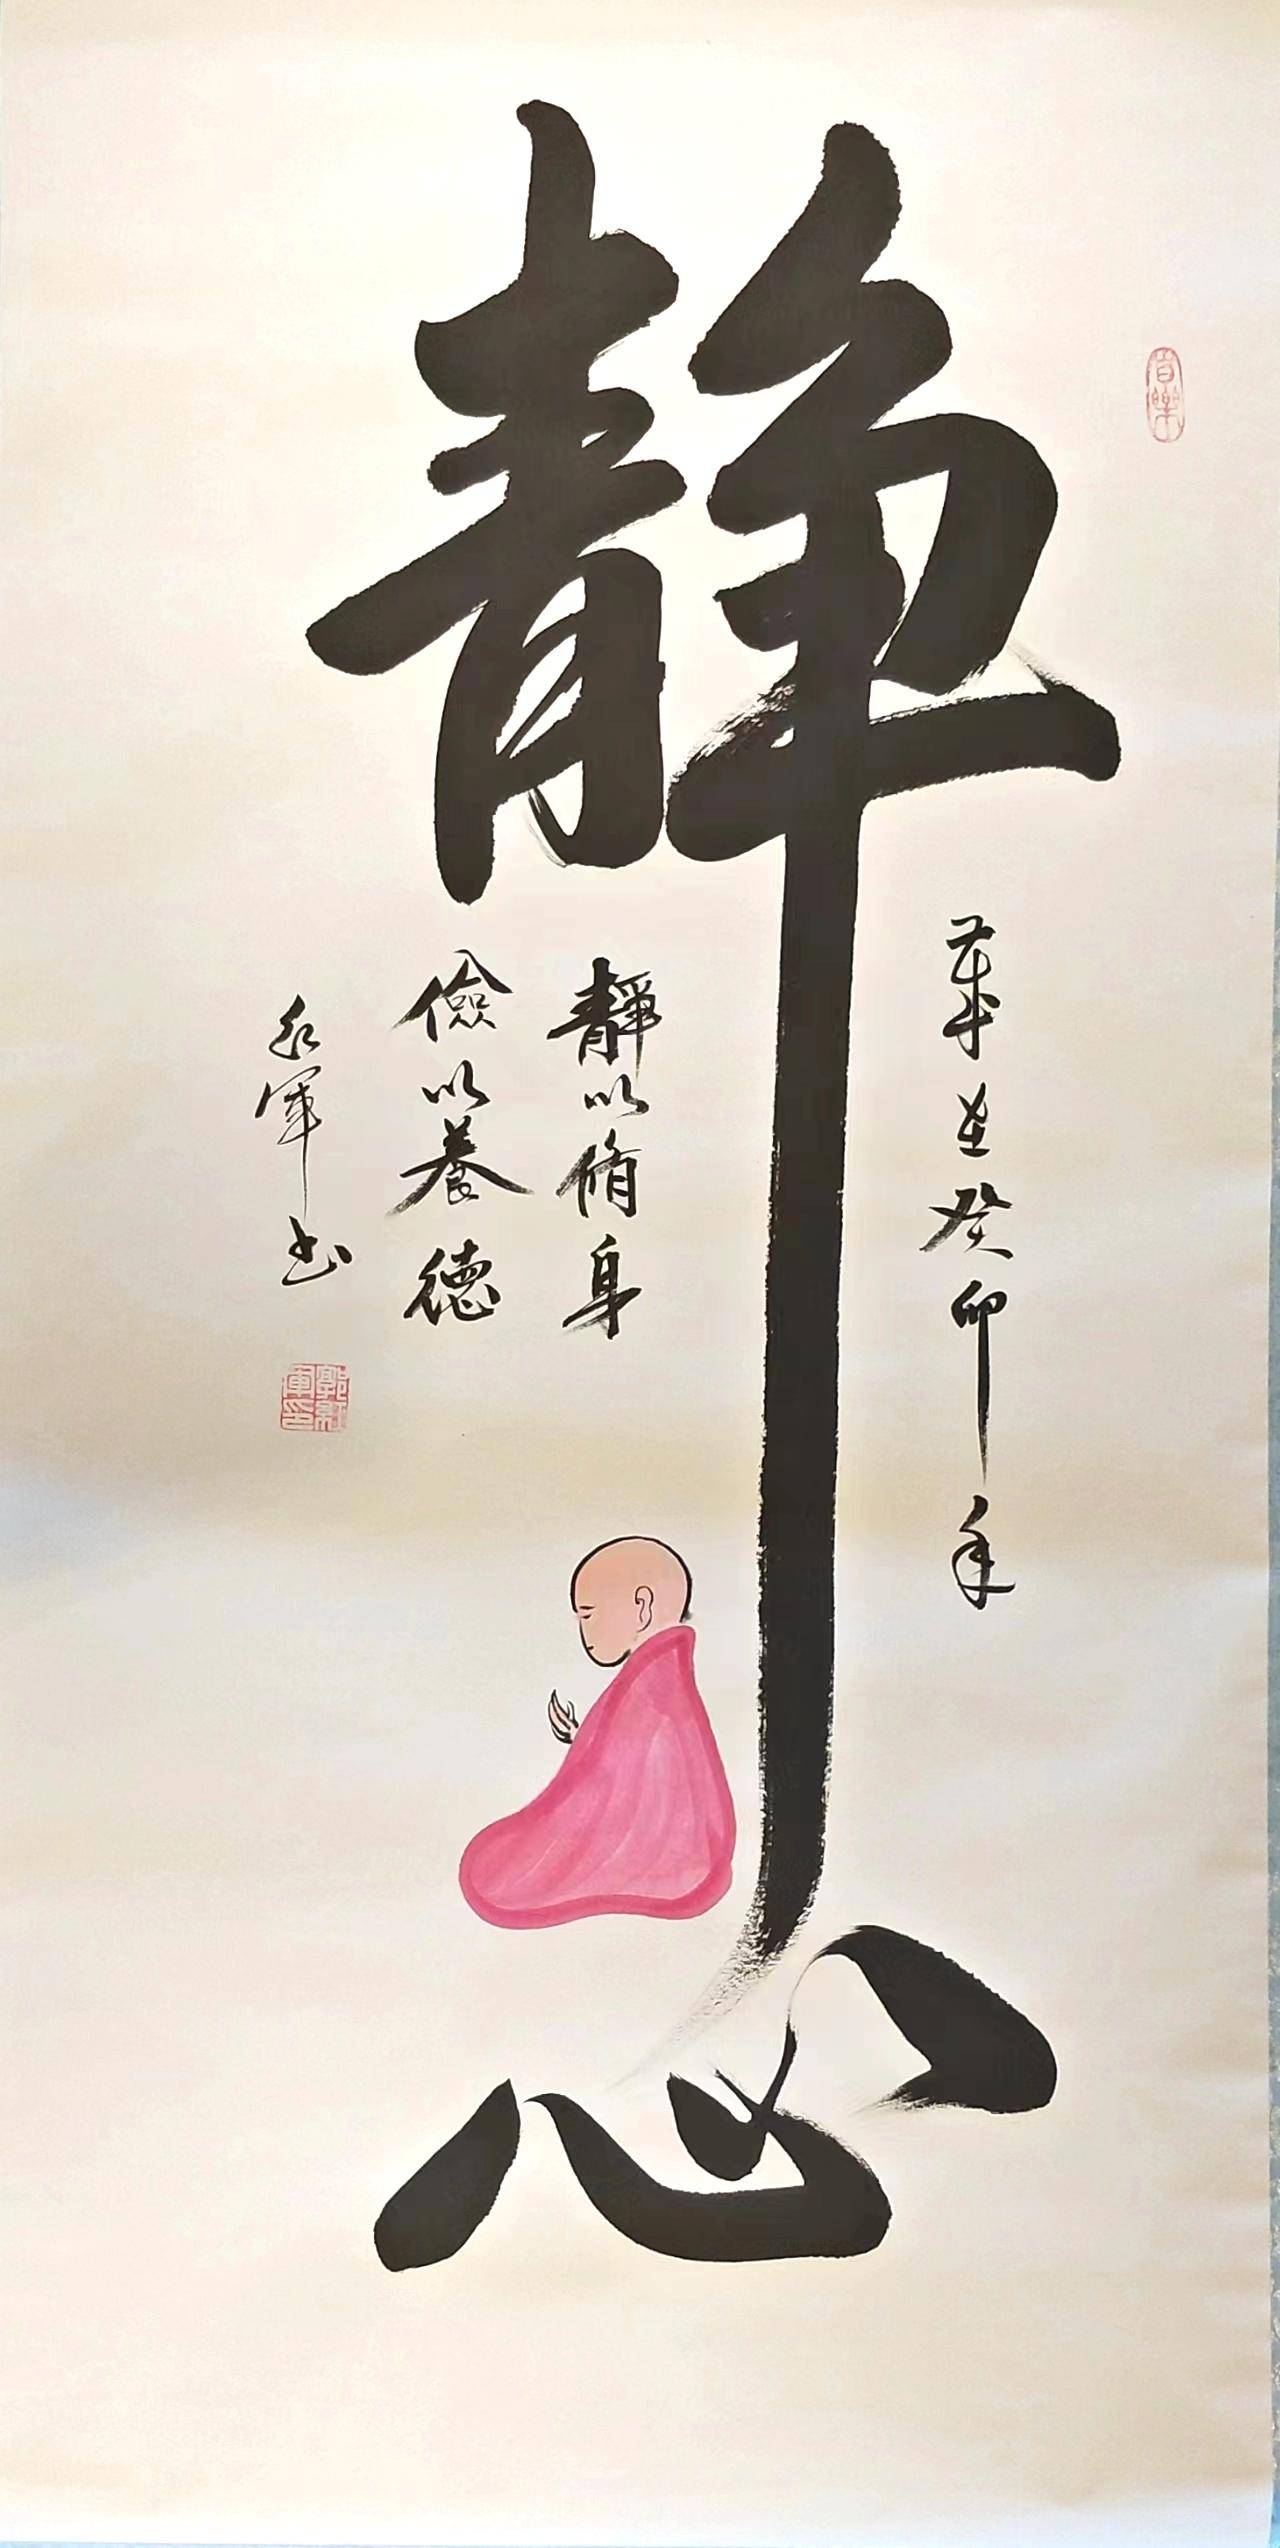 静心
歲在癸卯年
靜以脩身
儉以養德
红軍书